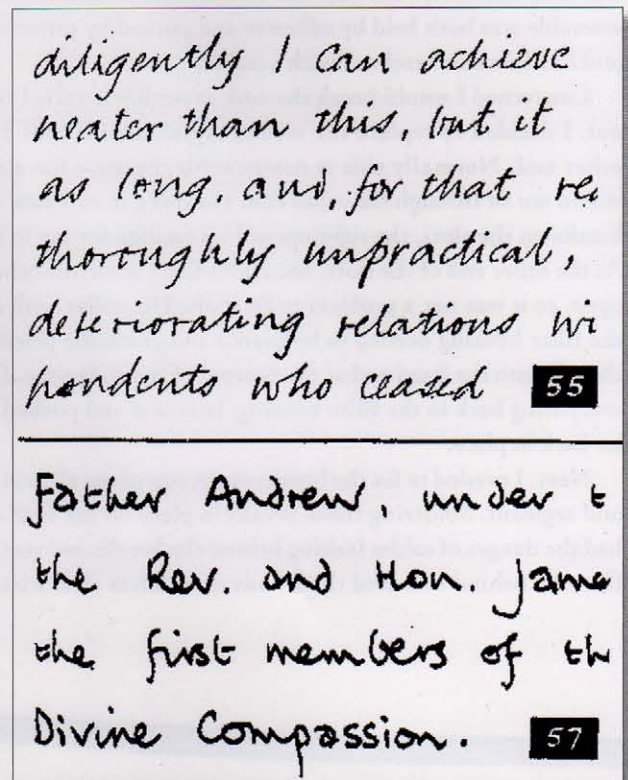 diligently I can achieve
neater than this, but it
as long, and, for that re
thoroughly unpractical,
deteriorating relations wi
pondents who ceased 55
Father Andrew, under t
the Rev. and Hon. Jame
the first members of th
Divine Compassion. 57